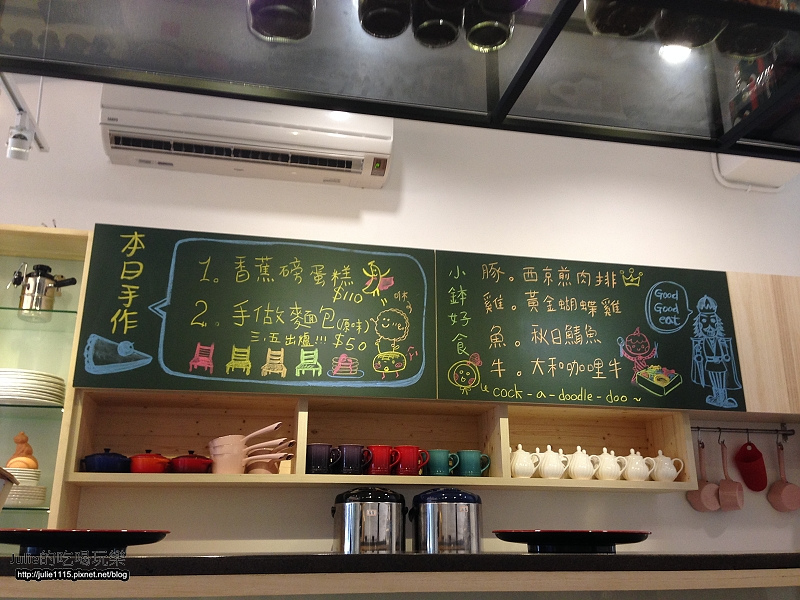 本日手作
1。香蕉磅蛋糕
$110
2。手做麵包(原味)
三.五出爐!!! $50
小鉢好食
豚。西京煎肉排
雞。黃金蝴蝶雞
魚。秋日鯖魚
牛。大和咖哩牛
cock-a-doodle-doo~
Good
Good
eat
Julie的吃喝玩樂
http://julie1115.pixnet.net/blog